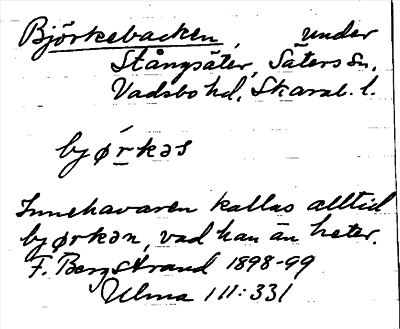 Björkebacken, under
Stångsäter, Säters Sn.
Vadsbo hd. Skarab. l.
byørkəs
Innehavaren kallas alltid
byørkən, vad han än heter.
F. Bergstrand 1898-99
Ulma 111:331